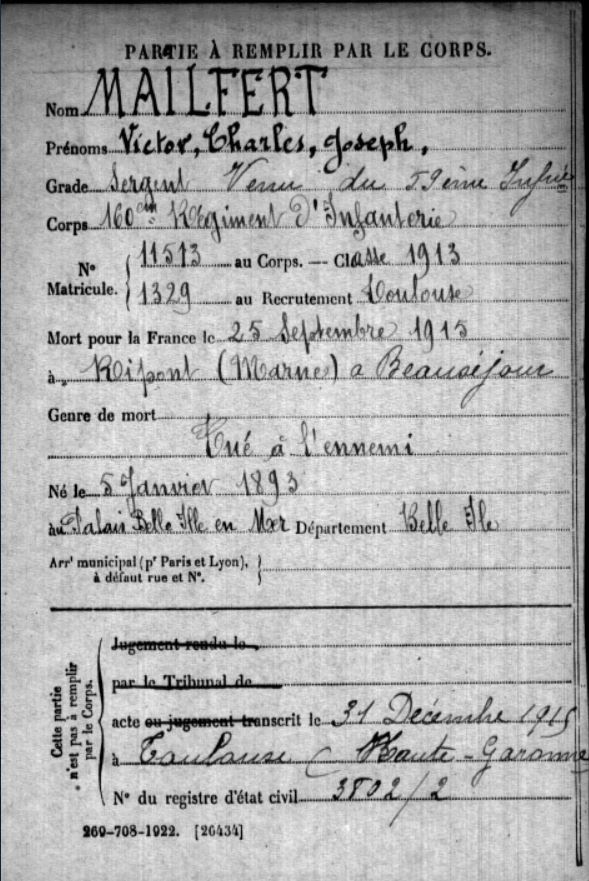 PARTIE À REMPLIR PAR LE CORPS.
Nom MAILFERT
Prénoms Victor, Charles, Joseph,
Grade Sergent Venu du 59ème Infrie
Corps 160em Régiment d'Infanterie
N° Matricule. 11513 au Corps. — Classe 1913
1329 au Recrutement Toulouse
Mort pour la France le 25 Septembre 1915
à Ripont (Marne) a Beauséjour
Genre de mort
Tué à l'ennemi
Né le 5 Janvier 1893
au Palais Belle Ille en Mer Département Belle Ile
Arrt municipal (pr Paris et Lyon),
à défaut rue et N°.
Cette partie n'est pas à remplir par le Corps.
Jugement rendu le
par le Tribunal de
acte ou jugement transcrit le 31 Décembre 1915
à Toulouse (Haute-Garonne
N° du registre d'état civil 3802/2
269-708-1922. [26434]